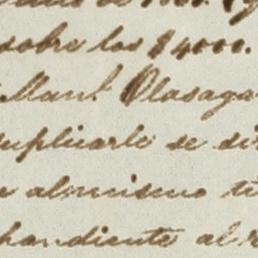 sobre los $4000.
Man.l Olasaga
suplicarle se di
al mismo ti
pondiente al r